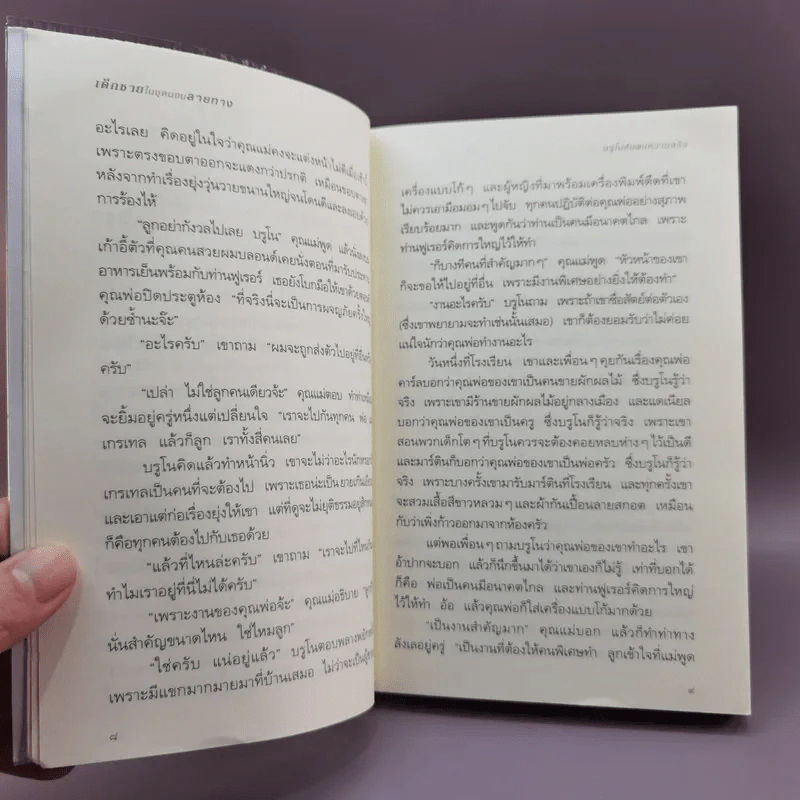 เด็กชายในชุดนอนลายทาง
อะไรเลย คิดอยู่ในใจว่าคุณแม่คงจะแต่งหน้าไม่ดีเมื่อเช้านี้
เพราะตรงขอบตาออกจะแดงกว่าปรกติ เหมือนขอบตาเขา
หลังจากทำเรื่องยุ่งวุ่นวายขนานใหญ่จนโดนตีและลงเอยด้วย
การร้องไห้
“ลูกอย่ากังวลไปเลย บรูโน” คุณแม่พูด แล้วนั่งลงบน
เก้าอี้ตัวที่คุณคนสวยผมบลอนด์เคยนั่งตอนที่มารับประทาน
อาหารเย็นพร้อมกับท่านฟูเรอร์ เธอยังโบกมือให้เขาด้วยตอนที่
คุณพ่อปิดประตูห้อง “ที่จริงนี่จะเป็นการผจญภัยครั้งใหญ่
ด้วยซ้ำนะจ๊ะ”
“อะไรครับ” เขาถาม “ผมจะถูกส่งตัวไปอยู่ที่อื่นหรือ
ครับ”
“เปล่า ไม่ใช่ลูกคนเดียวจ้ะ” คุณแม่ตอบ ทำท่าเหมือน
จะยิ้มอยู่ครู่หนึ่งแต่เปลี่ยนใจ “เราจะไปกันทุกคน พ่อ แม่
เกรเทล แล้วก็ลูก เราทั้งสี่คนเลย”
บรูโนคิดแล้วทำหน้านิ่ว เขาจะไม่ว่าอะไรนักหรอกถ้า
เกรเทลเป็นคนที่จะต้องไป เพราะเธอน่ะเป็นยายเกินเยียวยา
และเอาแต่ก่อเรื่องยุ่งให้เขา แต่ที่ดูจะไม่ยุติธรรมอยู่สักหน่อย
ก็คือทุกคนต้องไปกับเธอด้วย
“แล้วที่ไหนล่ะครับ” เขาถาม “เราจะไปที่ไหนกัน
ทำไมเราอยู่ที่นี่ไม่ได้ครับ”
“เพราะงานของคุณพ่อจ้ะ” คุณแม่อธิบาย “ลูกก็รู้
นั่นสำคัญขนาดไหน ใช่ไหมลูก”
“ใช่ครับ แน่อยู่แล้ว” บรูโนตอบพลางพยักหน้า
เพราะมีแขกมากมายมาที่บ้านเสมอ ไม่ว่าจะเป็นผู้ชาย
๘
เครื่องแบบโก้ๆ และผู้หญิงที่มาพร้อมเครื่องพิมพ์ดีดที่เขา
ไม่ควรเอามือมอมๆ ไปจับ ทุกคนปฏิบัติต่อคุณพ่ออย่างสุภาพ
เรียบร้อยมาก และพูดกันว่าท่านเป็นคนมีอนาคตไกล เพราะ
ท่านฟูเรอร์คิดการใหญ่ไว้ให้ทำ
“ก็บางทีคนที่สำคัญมากๆ” คุณแม่พูด “หัวหน้าของเขา
ก็จะขอให้ไปอยู่ที่อื่น เพราะมีงานพิเศษอย่างยิ่งให้ต้องทำ”
“งานอะไรครับ” บรูโนถาม เพราะถ้าเขาซื่อสัตย์ต่อตัวเอง
(ซึ่งเขาพยายามจะทำเช่นนั้นเสมอ) เขาก็ต้องยอมรับว่าไม่ค่อย
แน่ใจนักว่าคุณพ่อทำงานอะไร
วันหนึ่งที่โรงเรียน เขาและเพื่อนๆ คุยกันเรื่องคุณพ่อ
คาร์ลบอกว่าคุณพ่อของเขาเป็นคนขายผักผลไม้ ซึ่งบรูโนรู้ว่า
จริง เพราะเขามีร้านขายผักผลไม้อยู่กลางเมือง และแดเนียล
บอกว่าคุณพ่อของเขาเป็นครู ซึ่งบรูโนก็รู้ว่าจริง เพราะเขา
สอนพวกเด็กโตๆ ที่บรูโนควรจะต้องคอยหลบห่างๆ ไว้เป็นดี
และมาร์ตินก็บอกว่าคุณพ่อของเขาเป็นพ่อครัว ซึ่งบรูโนก็รู้ว่า
จริง เพราะบางครั้งเขามารับมาร์ตินที่โรงเรียน และทุกครั้งเขา
จะสวมเสื้อสีขาวหลวมๆ และผ้ากันเปื้อนลายสกอต เหมือน
กับว่าเพิ่งก้าวออกมาจากห้องครัว
แต่พอเพื่อนๆ ถามบรูโนว่าคุณพ่อของเขาทำอะไร เขา
อ้าปากจะบอก แล้วก็นึกขึ้นมาได้ว่าเขาเองก็ไม่รู้ เท่าที่บอกได้
ก็คือ พ่อเป็นคนมีอนาคตไกล และท่านฟูเรอร์คิดการใหญ่
ไว้ให้ทำ อ้อ แล้วคุณพ่อก็ใส่เครื่องแบบโก้มากด้วย
“เป็นงานสำคัญมาก” คุณแม่บอก แล้วก็ทำท่าทาง
ลังเลอยู่ครู่ “เป็นงานที่ต้องให้คนพิเศษทำ ลูกเข้าใจที่แม่พูด
๙